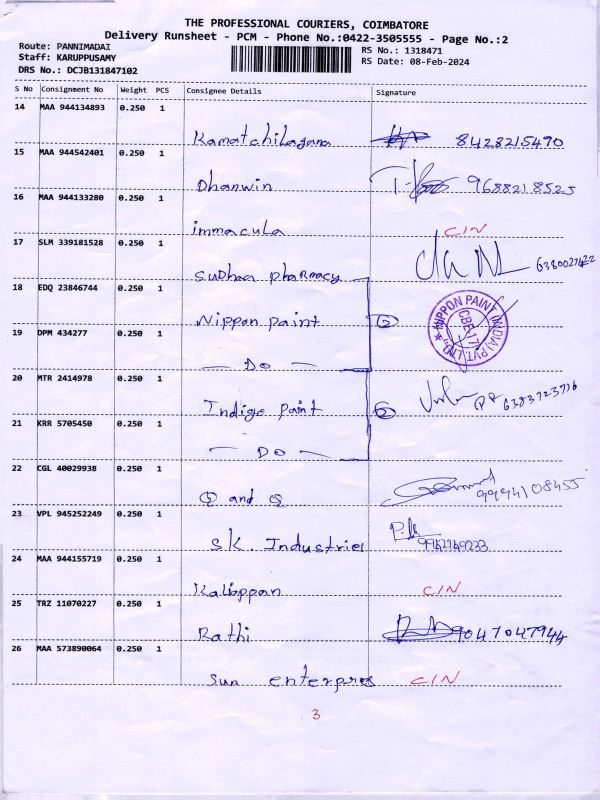 THE PROFESSIONAL COURIERS, COIMBATORE
Delivery Runsheet - PCM - Phone No.:0422-3505555 - Page No.:2
Route: PANNIMADAI
Staff: KARUPPUSAMY
DRS No.: DCJB131847102
RS No.: 1318471
RS Date: 08-Feb-2024
S No Consignment No Weight PCS Consignee Details Signature
14 MAA 944134893 0.250 1
Kamatchilagana 8428215490
15 MAA 944542401 0.250 1
Dhanwin 9688218525
16 MAA 944133280 0.250 1
immacula CIN
17 SLM 339181528 0.250 1
Sudhaa pharmacy 6380027422
18 EDQ 23846744 0.250 1
Nippon paint ②
NIPPON PAINT (INDIA) PVT. LTD. CBE-17
19 DPM 434277 0.250 1
— DO —
20 MTR 2414978 0.250 1
Indigo paint 6383723716
21 KRR 5705450 0.250 1
— DO —
22 CGL 40029938 0.250 1
Q and Q 9994108455
23 VPL 945252249 0.250 1
S.K. Industries 9942949233
24 MAA 944155719 0.250 1
Kaliappan CIN
25 TRZ 11070227 0.250 1
Rathi 9047047944
26 MAA 573890064 0.250 1
Sun enterpries CIN
3